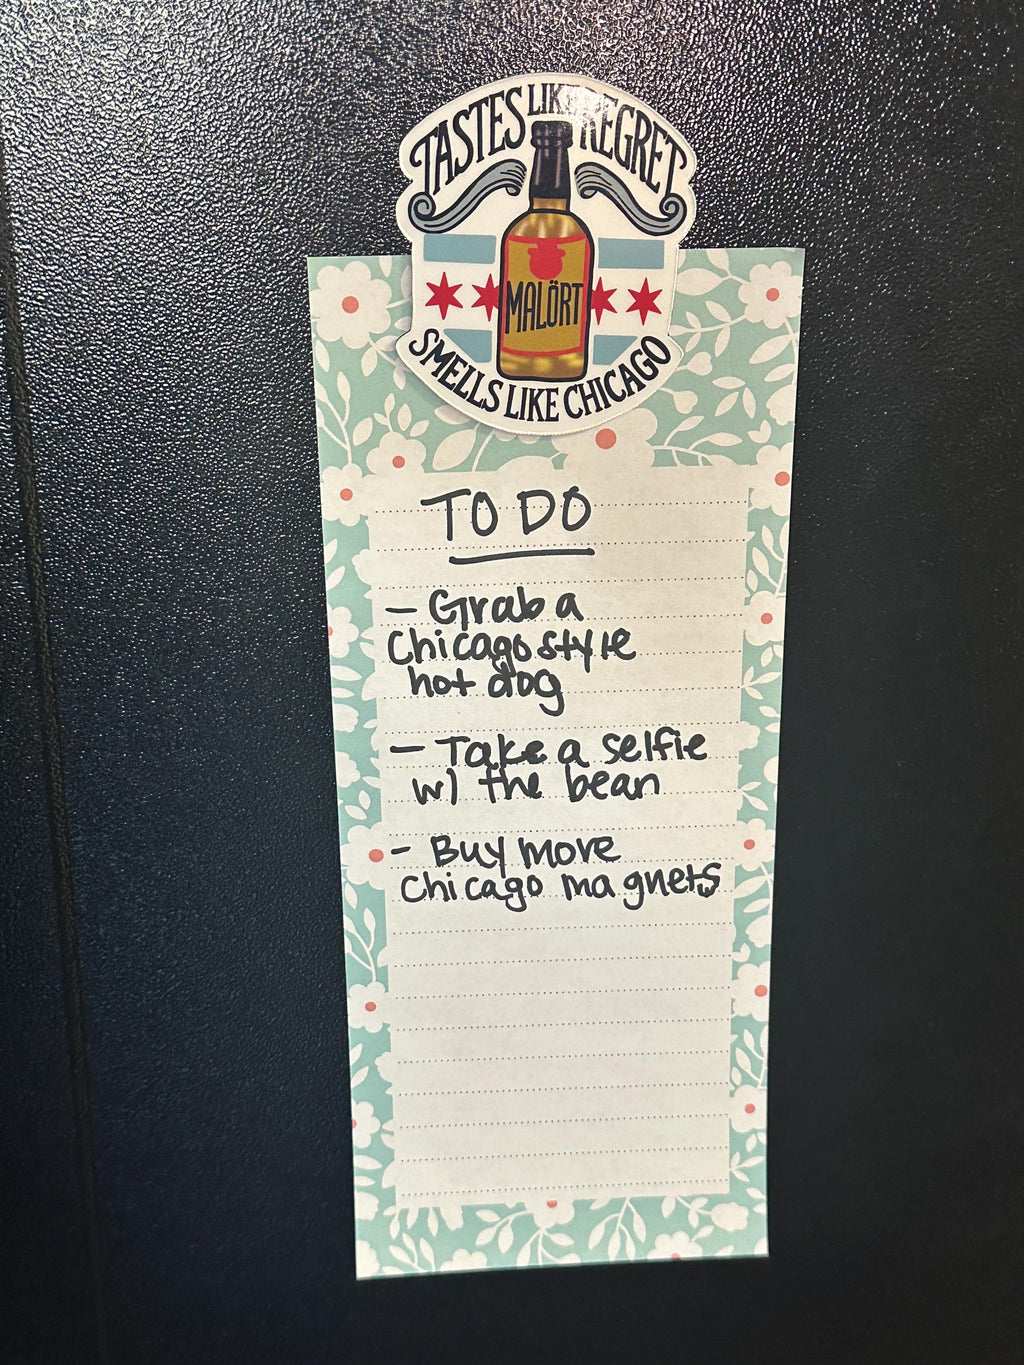 TASTES LIKE REGRET
MALÖRT
SMELLS LIKE CHICAGO
TO DO
- Grab a
Chicago style
hot dog
- Take a selfie
w/ the bean
- Buy more
Chicago magnets